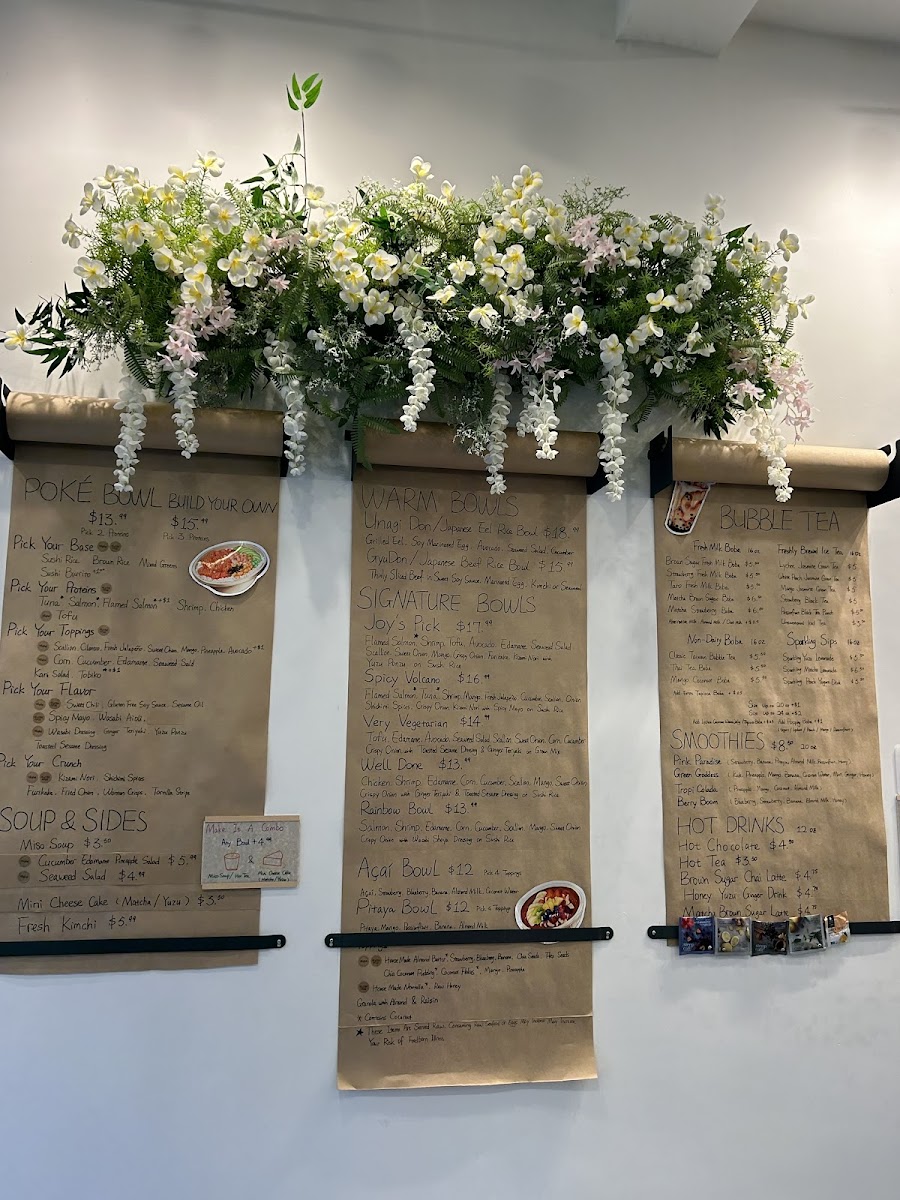 POKÉ BOWL BUILD YOUR OWN
$13.99 $15.99
Pick 2 Proteins Pick 3 Proteins
Pick Your Base
Sushi Rice Brown Rice Mixed Greens
Sushi Burrito
Pick Your Protiens
Tuna* Salmon* Flamed Salmon*+$1 Shrimp, Chicken
Tofu
Pick Your Toppings
Scallion, Cilantro, Fresh Jalapeño, Sweet Onion, Mango, Pineapple, Avocado+$1
Corn, Cucumber, Edamame, Seaweed Salad
Kani Salad, Tobiko
Pick Your Flavor
Sweet Chili, Gluten Free Soy Sauce, Sesame Oil
Spicy Mayo, Wasabi Aioli,
Wasabi Dressing, Ginger Teriyaki, Yuzu Ponzu
Toasted Sesame Dressing
Pick Your Crunch
Kizami Nori, Shichimi Spices
Furikake, Fried Onion, Wonton Crisps, Tortilla Strips
SOUP & SIDES
Miso Soup $3.50
Cucumber Edamame Pineapple Salad $5.99
Seaweed Salad $4.99
Mini Cheese Cake (Matcha/Yuzu) $5.50
Fresh Kimchi $5.99
Make It A Combo
Any Bowl + 4.99
&
Miso Soup/Hot Tea Mini Cheese Cake
(Matcha/Yuzu)
WARM BOWLS
Unagi Don/Japanese Eel Rice Bowl $18.99
Grilled Eel, Soy Marinated Egg, Avocado, Seaweed Salad, Cucumber
GyuDon/Japanese Beef Rice Bowl $15.99
Thinly Sliced Beef in Sweet Soy Sauce, Marinated Egg, Kimchi or Seaweed
SIGNATURE BOWLS
Joy's Pick $17.99
Flamed Salmon*, Shrimp, Tofu, Avocado, Edamame, Seaweed Salad
Scallion, Sweet Onion, Mango, Crispy Onion, Furikake, Kizami Nori with
Yuzu Ponzu on Sushi Rice
Spicy Volcano $16.99
Flamed Salmon*, Tuna*, Shrimp, Mango, Fresh Jalapeño, Cucumber, Scallion, Onion
Shichimi Spices, Crispy Onion, Kizami Nori with Spicy Mayo on Sushi Rice
Very Vegetarian $14.99
Tofu, Edamame, Avocado, Seaweed Salad, Scallion, Sweet Onion, Corn, Cucumber
Crispy Onion with Toasted Sesame Dressing & Ginger Teriyaki on Green Mix
Well Done $13.99
Chicken, Shrimp, Edamame, Corn, Cucumber, Scallion, Mango, Sweet Onion
Crispy Onion with Ginger Teriyaki & Toasted Sesame Dressing on Sushi Rice
Rainbow Bowl $13.99
Salmon, Shrimp, Edamame, Corn, Cucumber, Scallion, Mango, Sweet Onion
Crispy Onion with Wasabi Shoyu Dressing on Sushi Rice
Açaí Bowl $12 Pick 4 Toppings
Açaí, Strawberry, Blueberry, Banana, Almond Milk, Coconut Water
Pitaya Bowl $12 Pick 4 Toppings
Pitaya, Mango, Passionfruit, Banana, Almond Milk
Home Made Almond Butter*, Strawberry, Blueberry, Banana, Chia Seeds, Flax Seeds
Chia Coconut Pudding*, Coconut Flakes*, Mango, Pineapple
Home Made Nomella*, Raw Honey
Granola with Almond & Raisin
* Contains Coconut
★ These Items Are Served Raw. Consuming Raw Seafood or Eggs May Increase
Your Risk of Foodborn Illness
BUBBLE TEA
Fresh Milk Boba 16oz Freshly Brewed Ice Tea 16oz
Brown Sugar Fresh Milk Boba Lychee Jasmine Green Tea
Strawberry Fresh Milk Boba White Peach Jasmine Green Tea
Taro Fresh Milk Boba Mango Jasmine Green Tea
Matcha Brown Sugar Boba Strawberry Black Tea
Matcha Strawberry Boba Passionfruit Black Tea
Unsweetened Iced Tea
Non-Dairy Boba 16oz Sparkling Sips 16oz
Classic Taiwan Bubble Tea Sparkling Yuzu Lemonade
Thai Tea Boba Sparkling Matcha Lemonade
Mango Coconut Boba
SMOOTHIES $8.50 20oz
Pink Paradise (Strawberry, Banana, Pitaya, Almond Milk, Passionfruit, Honey)
Green Goddess (Kale, Pineapple, Mango, Banana, Coconut Water, Mint, Ginger, Honey)
Tropi Colada (Pineapple, Mango, Coconut, Almond Milk)
Berry Boom (Blueberry, Strawberry, Banana, Almond Milk, Honey)
HOT DRINKS 12oz
Hot Chocolate $4.50
Hot Tea $3.50
Brown Sugar Chai Latte $4.75
Honey Yuzu Ginger Drink $4.75
Matcha Brown Sugar Latte $4.75